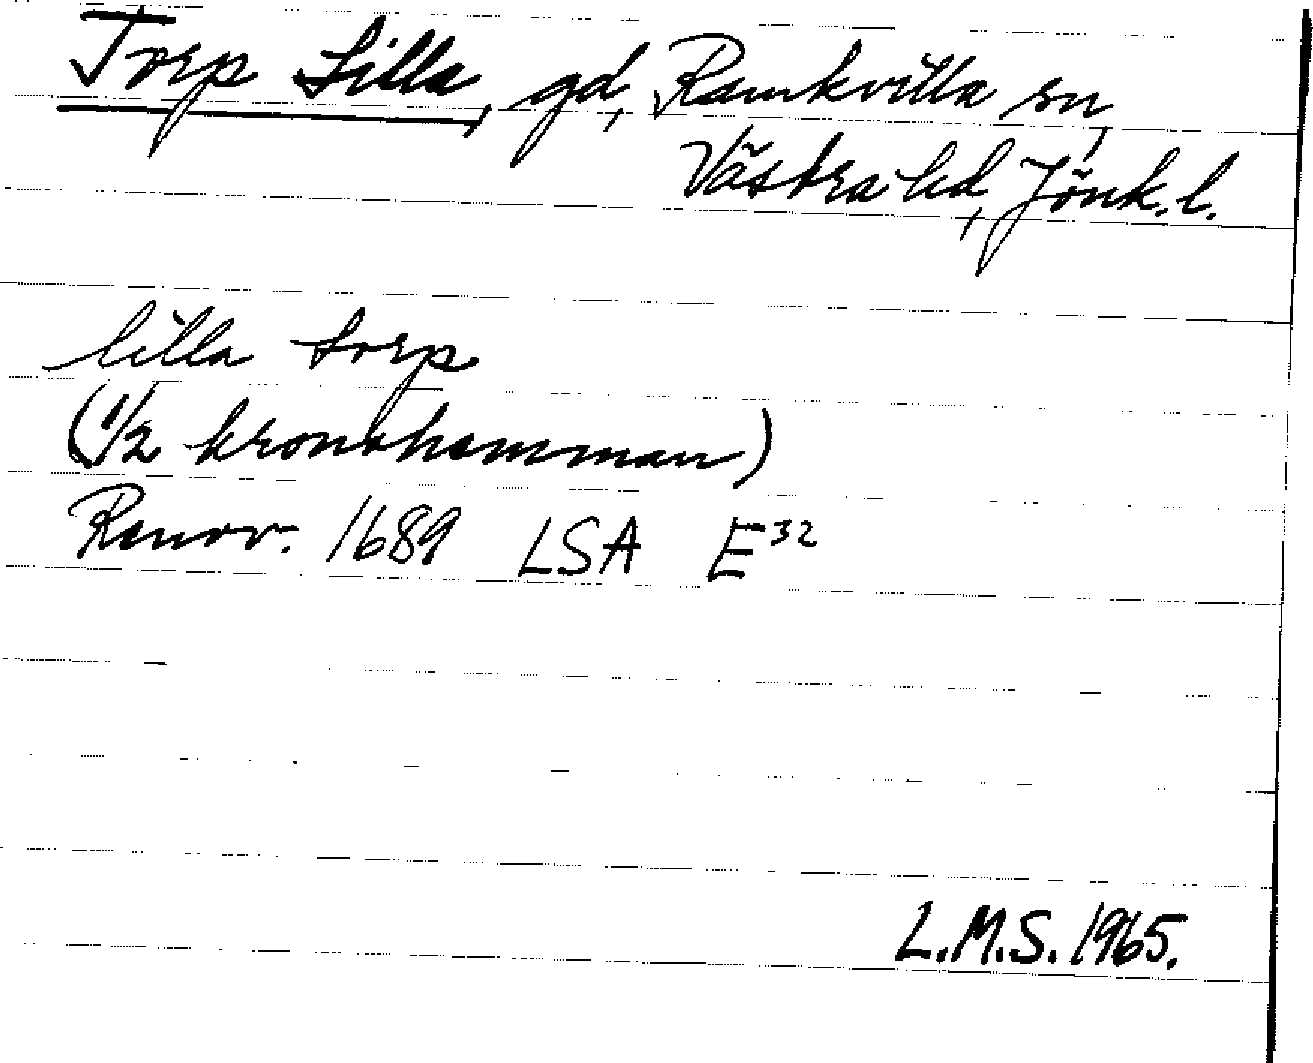 Torp Lilla, gd, Ramkvilla sn,
Västra hd, Jönk. l.
lilla torp
(1/2 kronohemman)
Renov. 1689 LSA E32
L.M.S. 1965.